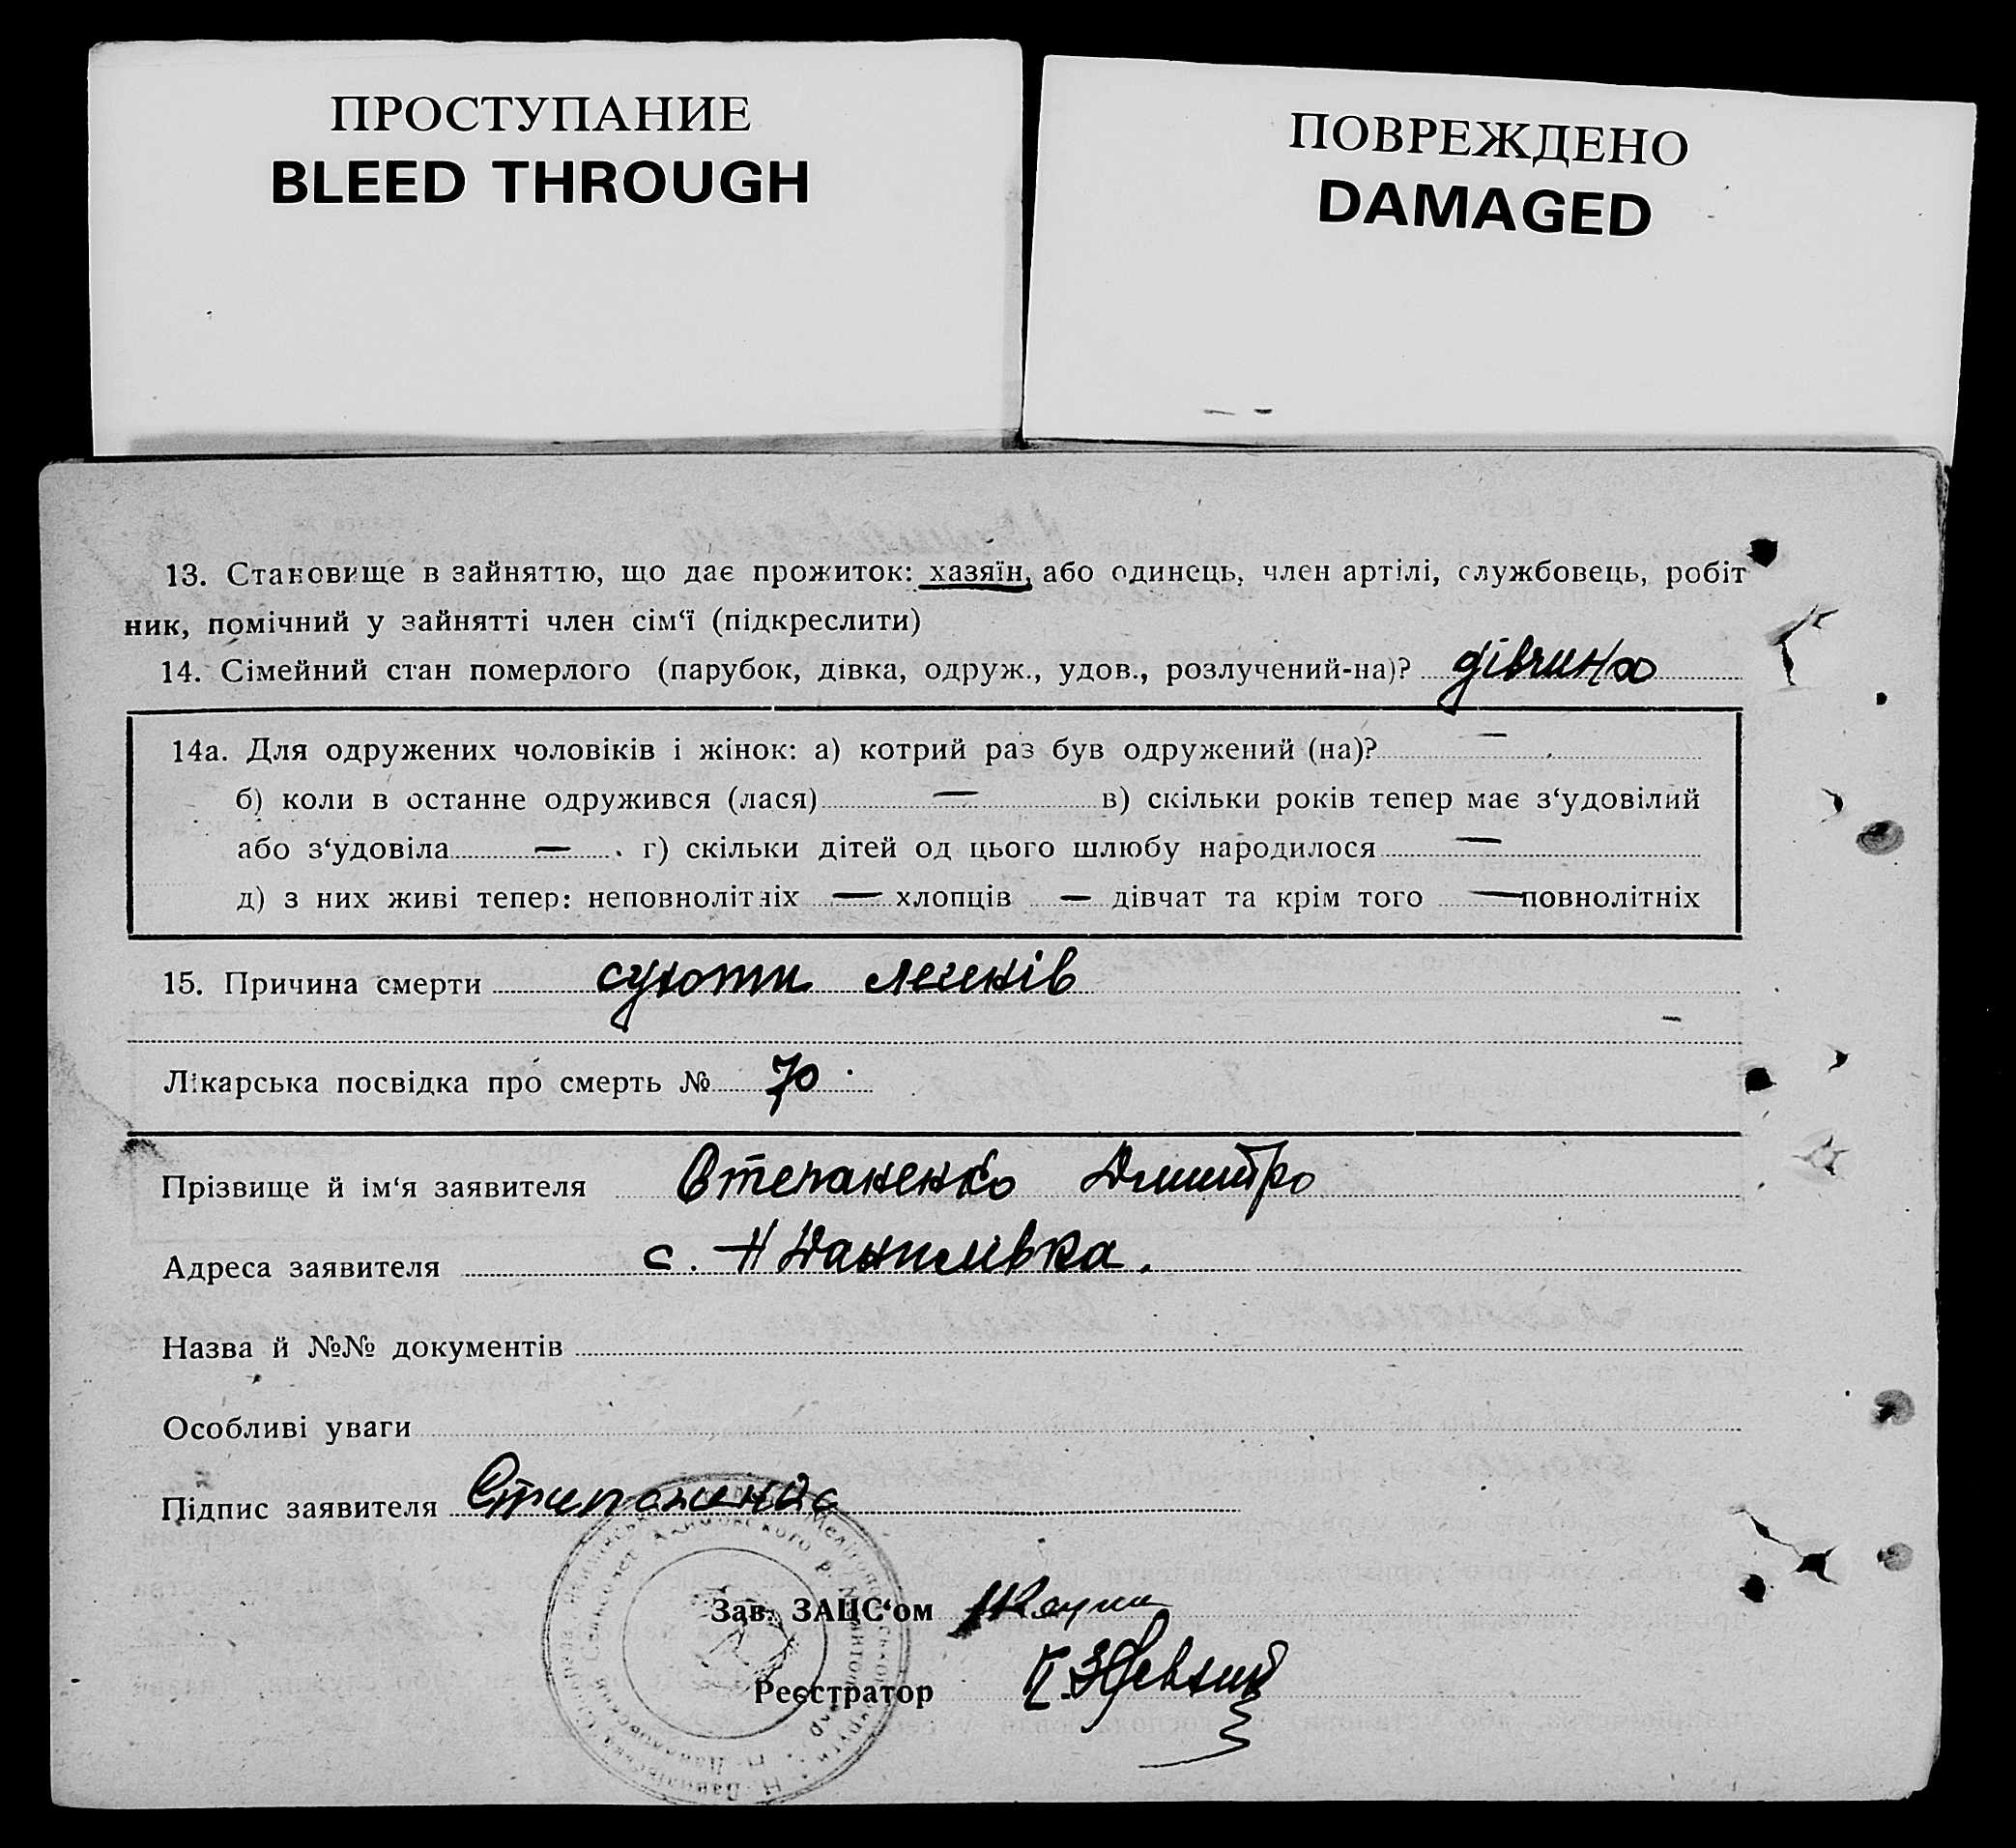 ПРОСТУПАНИЕ
BLEED THROUGH
ПОВРЕЖДЕНО
DAMAGED
13. Становище в зайняттю, що дає прожиток: хазяїн, або одинець, член артілі, службовець, робіт
ник, помічний у зайнятті член сім‘ї (підкреслити)
14. Сімейний стан померлого (парубок, дівка, одруж., удов., розлучений-на)? дівчина
14а. Для одружених чоловіків і жінок: а) котрий раз був одружений (на)? —
б) коли в останне одружився (лася) — в) скільки років тепер має з‘удовілий
або з‘удовіла — . г) скільки дітей од цього шлюбу народилося —
д) з них живі тепер: неповнолітніх — хлопців — дівчат та крім того — повнолітніх
15. Причина смерти сухоти легенів
Лікарська посвідка про смерть № 70
Прізвище й ім‘я заявителя Степаненко Дмитро
Адреса заявителя с. Н Данилівка.
Назва й №№ документів
Особливі уваги
Підпис заявителя Степаненко
Зав. ЗАЦС‘ом
Реєстратор